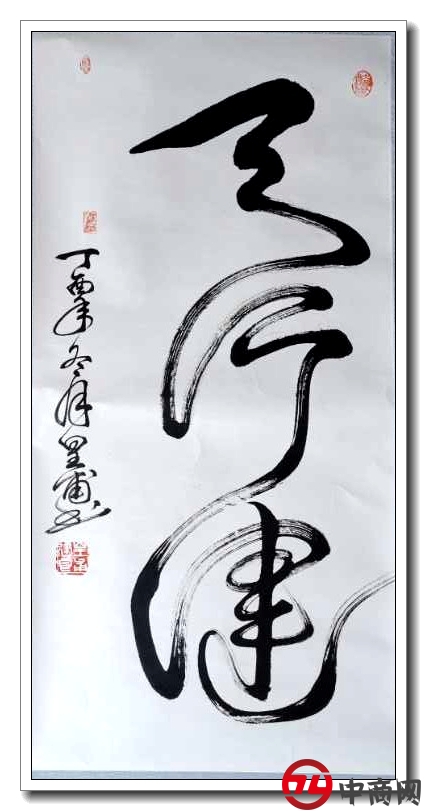 天行健
丁酉年冬月皇甫书
中商网